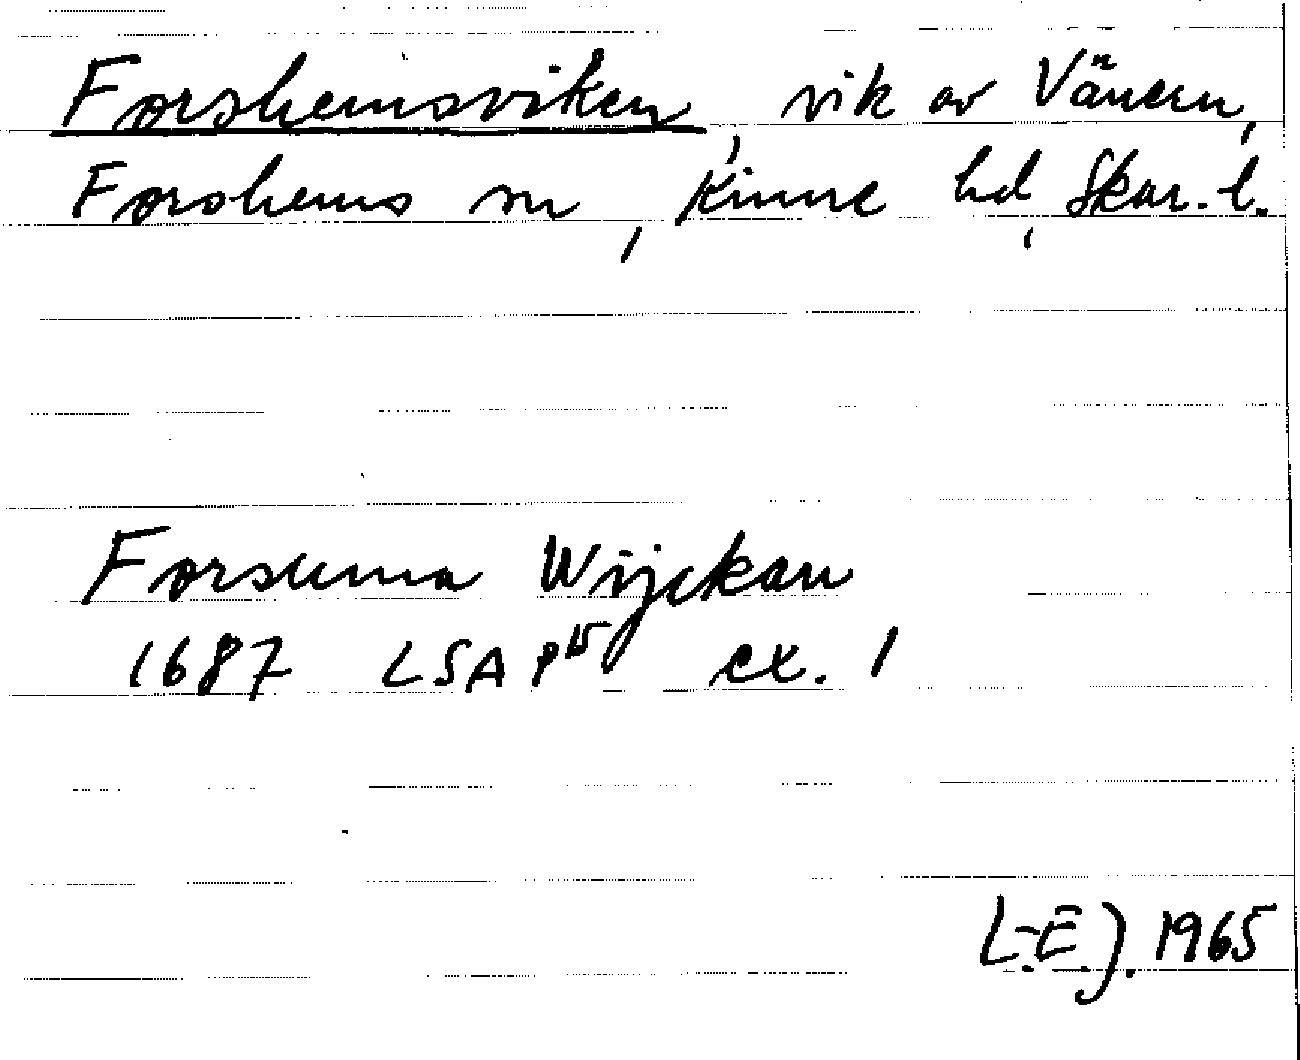 Forshemsviken, vik av Vänern,
Forshems sn, Kinne hd, Skar. l.
Forsema Wijckan
1687 LSA P15 ex. 1
L.-E. J. 1965